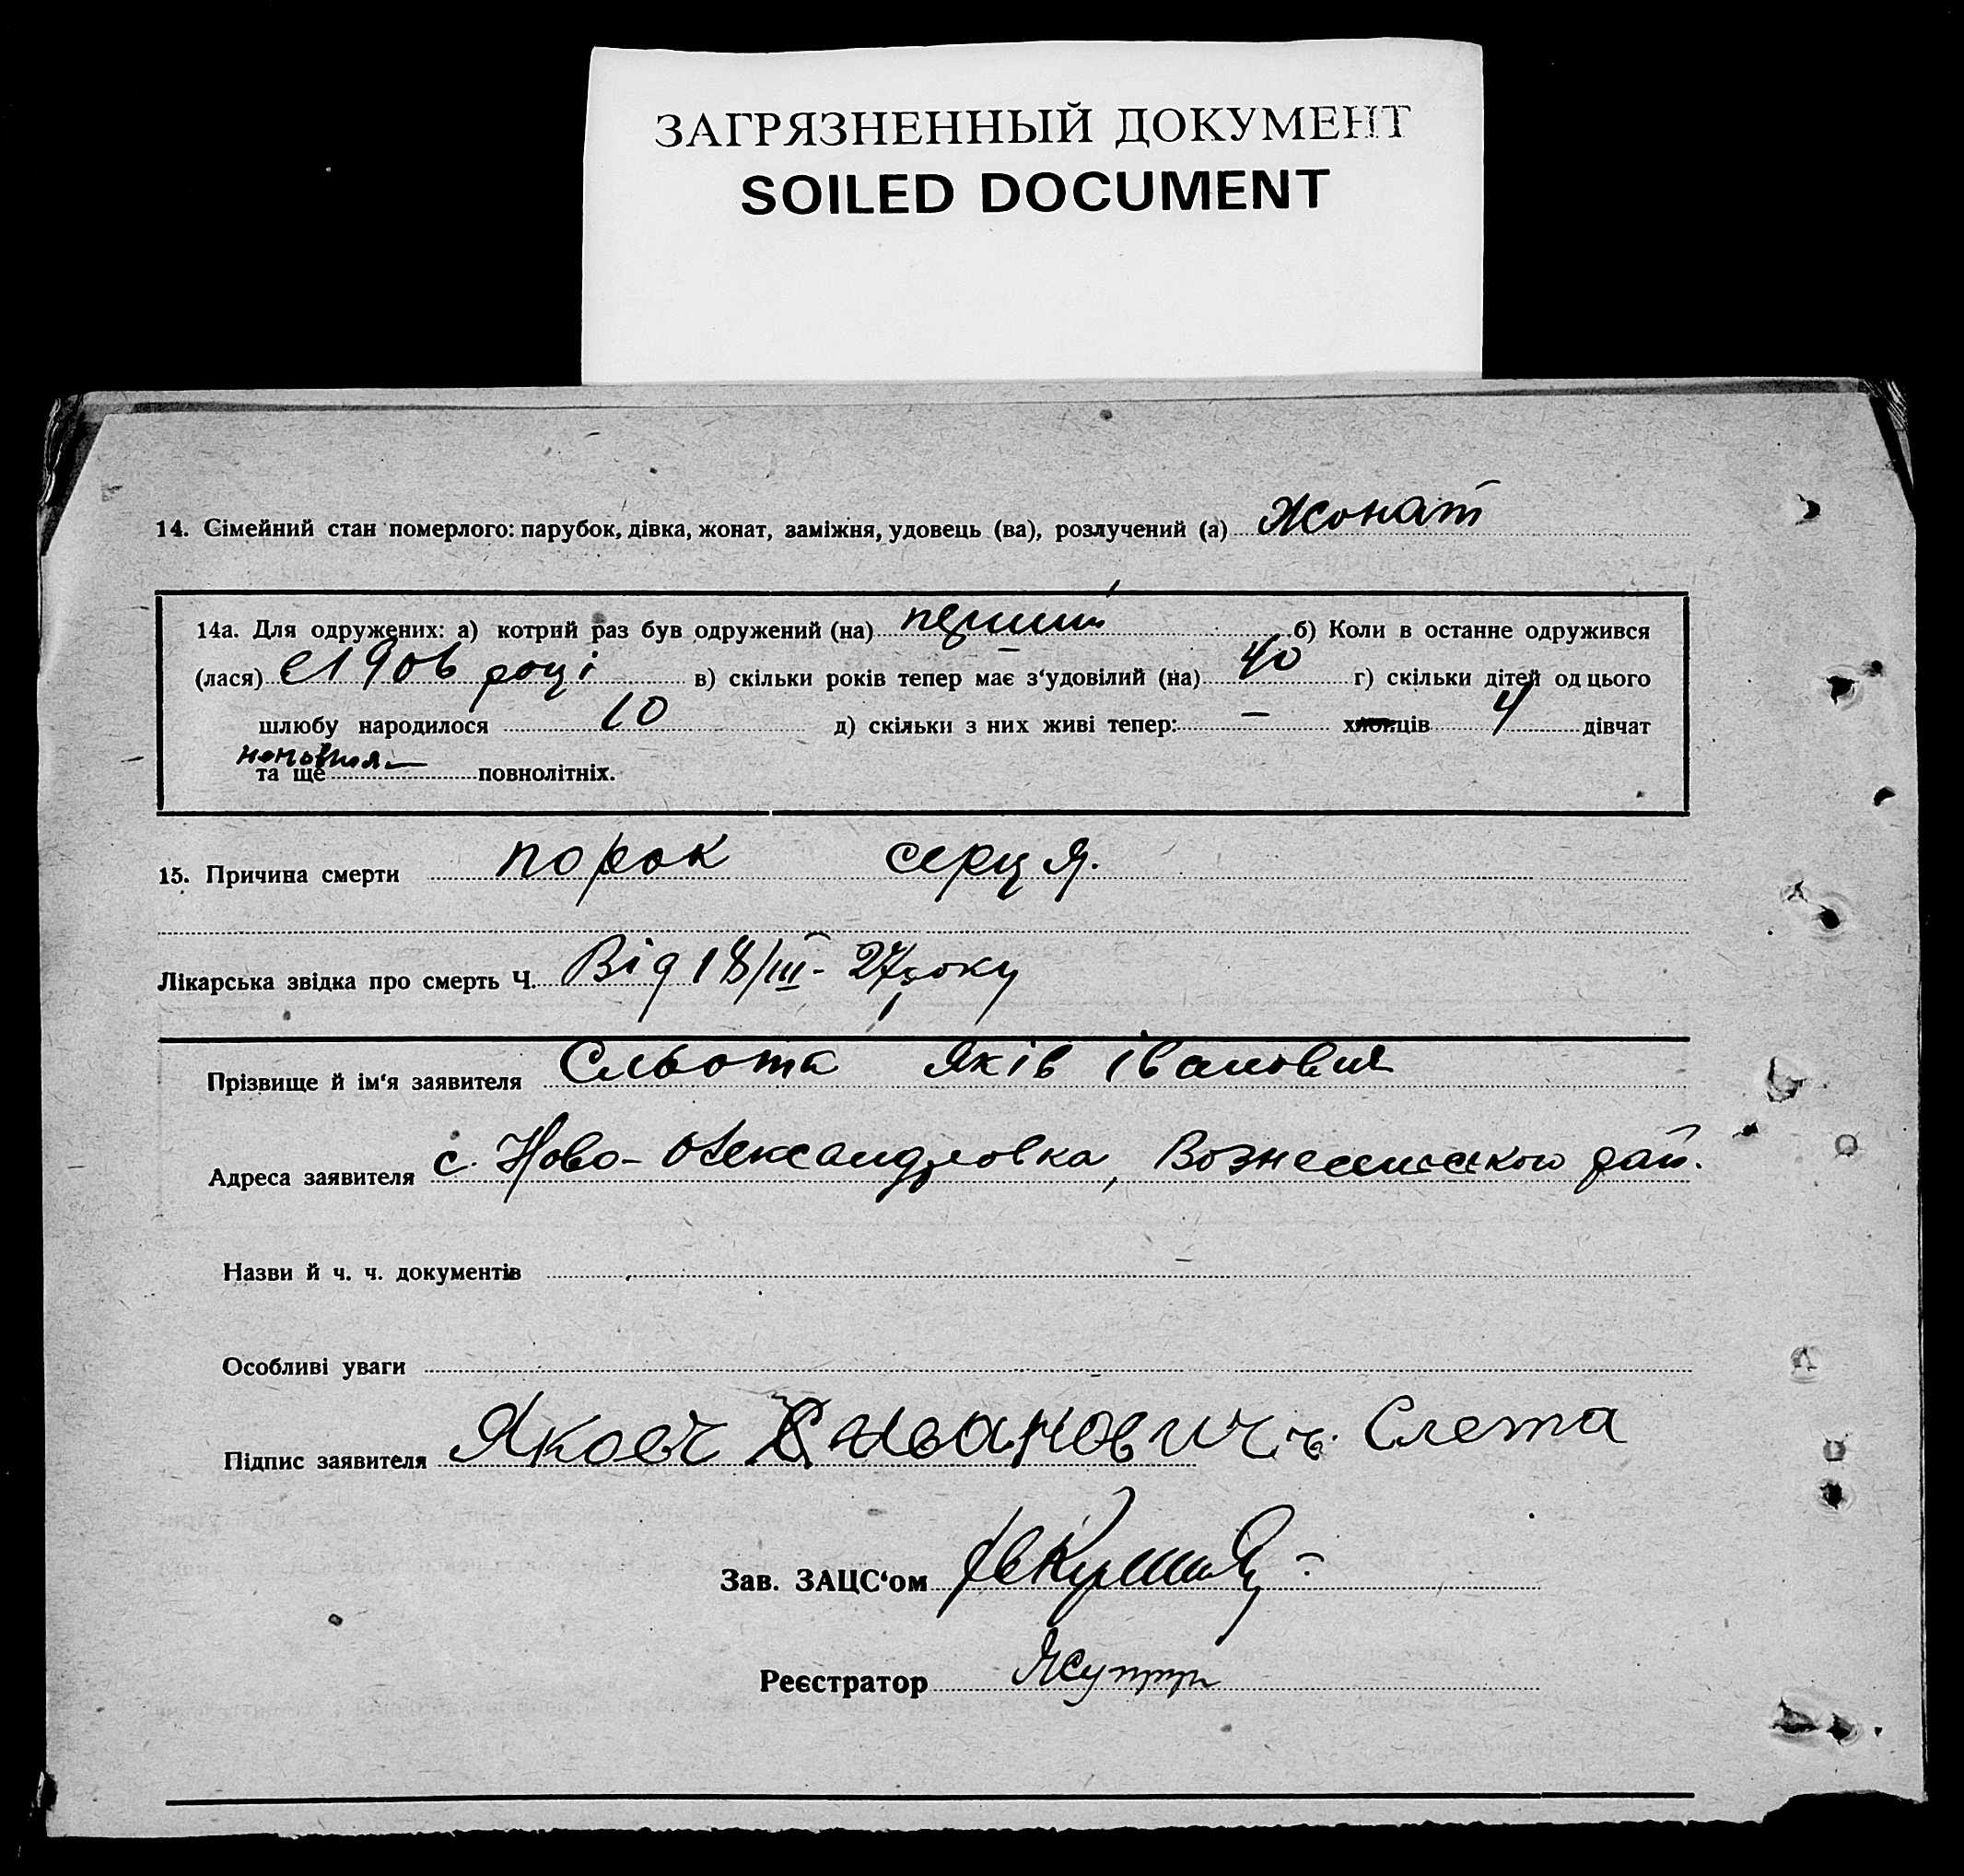 ЗАГРЯЗНЕННЫЙ ДОКУМЕНТ
SOILED DOCUMENT
14. Сімейний стан померлого: парубок, дівка, жонат, заміжня, удовець (ва), розлучений (а) Жонат
14а. Для одружених: а) котрий раз був одружений (на) перший б) Коли в останне одружився
(лася) 1906 році в) скільки років тепер має з‘удовілий (на) 40 г) скільки дітей од цього
шлюбу народилося 10 д) скільки з них живі тепер: – хлопців 4 дівчат
та ще повнолітніх.
15. Причина смерти порок серця.
Лікарська звідка про смерть Ч. Від 18/III - 27 року
Прізвище й ім‘я заявителя Сльота Яків Іванович
Адреса заявителя с. Ново-Олександровка, Вознесенського рай.
Назви й ч. ч. документів –
Особливі уваги
Підпис заявителя Яковъ Ивановичъ Слета
Зав. ЗАЦС‘ом
Реєстратор